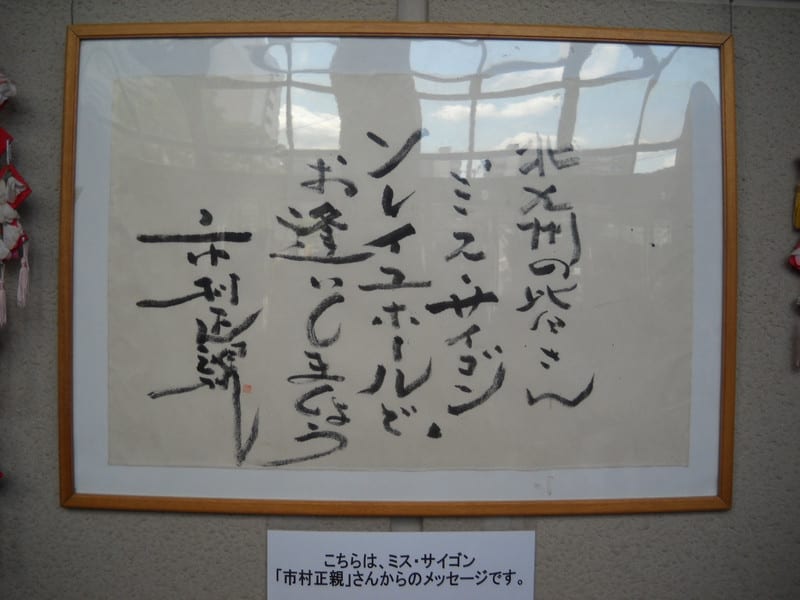 北九州の皆さん
ミス・サイゴン
ソレイユホールで
お逢いしましょう
市村正親
こちらは、ミス・サイゴン
「市村正親」さんからのメッセージです。